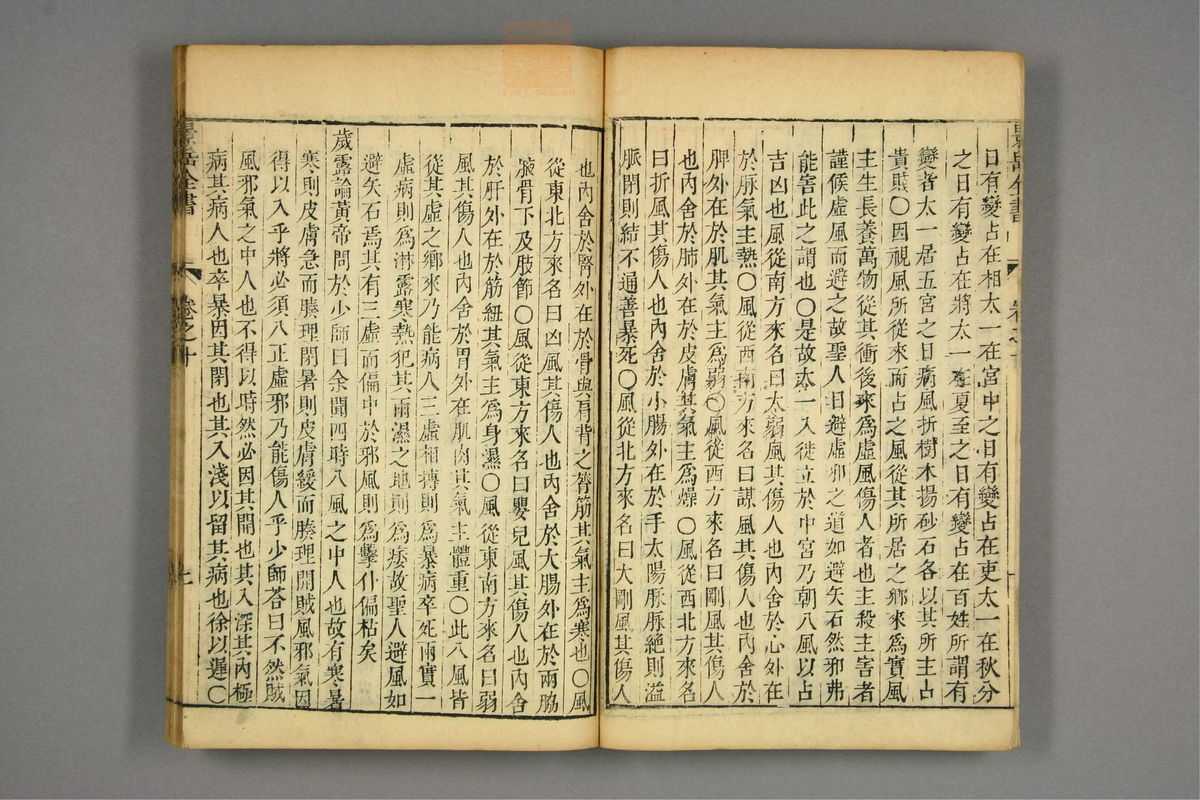 日有變占在相太一在宮中之日有變占在吏太一在秋分
之日有變占在將太一在夏至之日有變占在百姓所謂有
變者太一居五宮之日病風折樹木揚砂石各以其所主占
貴賤〇因視風所從來而占之風從其所居之鄉來爲實風
主生長養萬物從其衝後來爲虛風傷人者也主殺主害者
謹候虛風而避之故聖人日避虛邪之道如避矢石然邪弗
能害此之謂也〇是故太一入徙立於中宮乃朝八風以占
吉凶也風從南方來名曰大弱風其傷人也內舍於心外在
於脉氣主熱〇風從西南方來名曰謀風其傷人也內舍於
脾外在於肌其氣主爲弱〇風從西方來名曰剛風其傷人
也內舍於肺外在於皮膚其氣主爲燥〇風從西北方來名
曰折風其傷人也內舍於小腸外在於手太陽脉脉絕則溢
脈閉則結不通善暴死〇風從北方來名曰大剛風其傷人
景岳全書
卷之十
也內舍於腎外在於骨與肩背之膂筋其氣主爲寒也〇風
從東北方來名曰凶風其傷人也內舍於大腸外在於兩脇
腋骨下及肢節〇風從東方來名曰嬰兒風其傷人也內舍
於肝外在於筋紐其氣主爲身濕〇風從東南方來名曰弱
風其傷人也內舍於胃外在肌肉其氣主體重〇此八風皆
從其虛之鄉來乃能病人三虛相摶則爲暴病卒死兩實一
虛病則爲淋露寒熱犯其雨濕之地則爲痿故聖人避風如
避矢石焉其有三虛而偏中於邪風則爲擊仆偏枯矣
歲露論黃帝問於少師曰余聞四時八風之中人也故有寒暑
寒則皮膚急而腠理閉暑則皮膚緩而腠理開賊風邪氣因
得以入乎將必須八正虛邪乃能傷人乎少師答曰不然賊
風邪氣之中人也不得以時然必因其開也其入深其內極
病其病人也卒暴因其閉也其入淺以留其病也徐以遲〇
景岳全書
卷之十
七